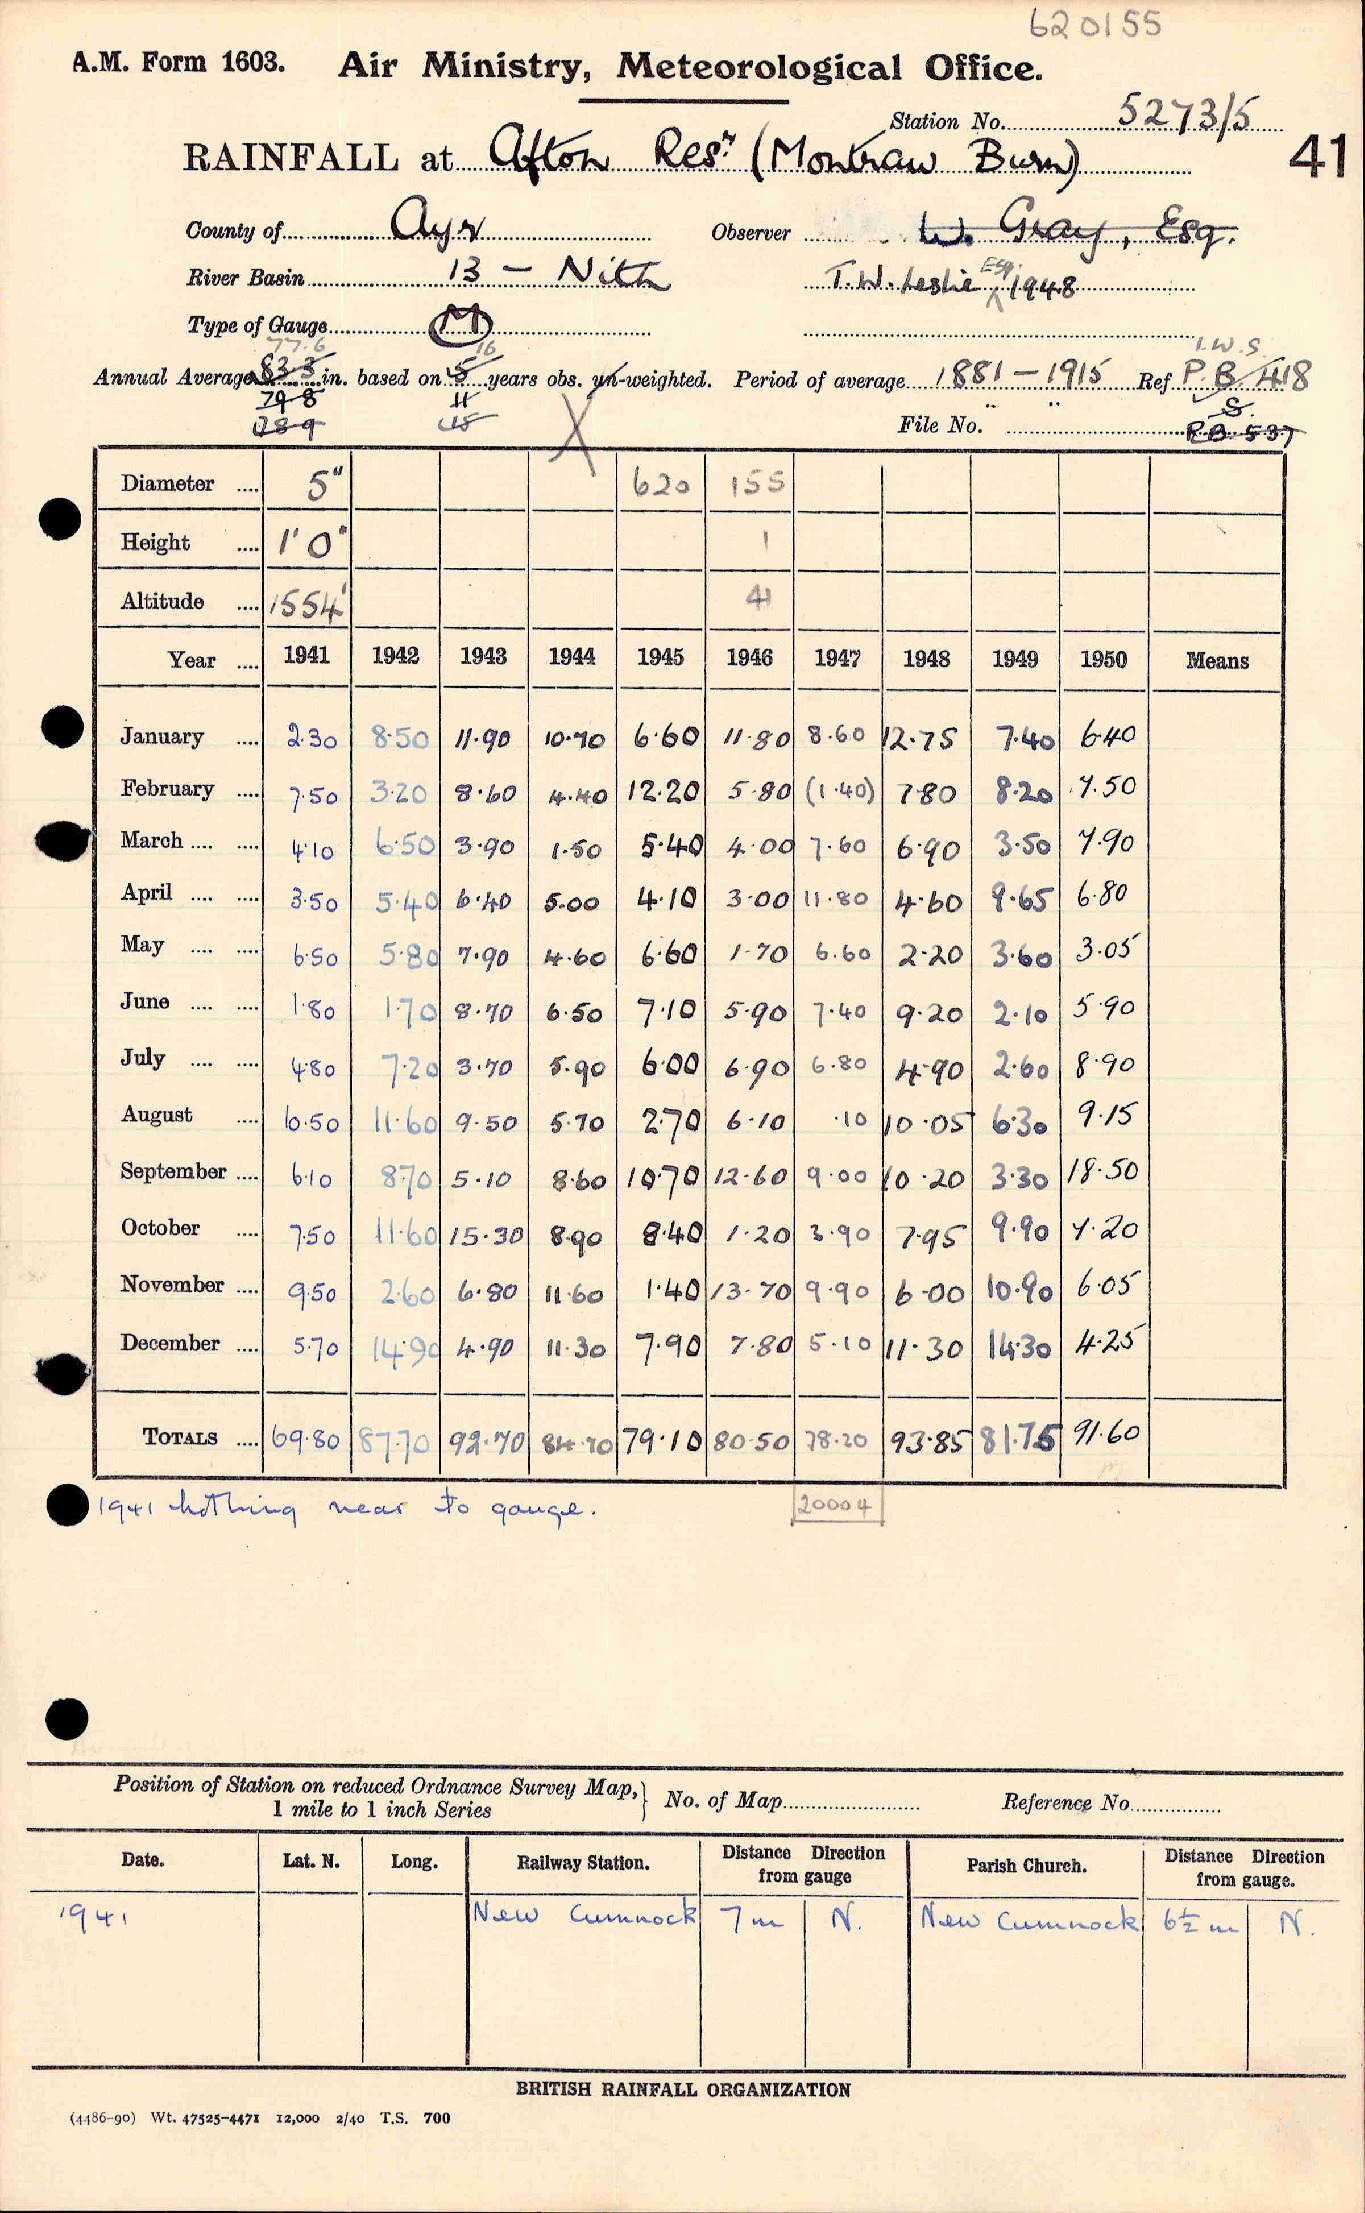 620155
A.M. Form 1603. Air Ministry, Meteorological Office.
Station No. 5273/5
RAINFALL at Afton Resr. (Montraw Burn) 41
County of Ayr Observer W. Gray, Esq.
River Basin 13 - Nith T.W. Leslie Esq. 1948
Type of Gauge M
77.6 16 I.W.S.
Annual Average 83.3 in. based on 5 years obs. un-weighted. Period of average 1881-1915 Ref P.B. 418
79.8 11 S.
78.9 15 File No. " " P.B. 537
Diameter .... 5" 620 155
Height .... 1' 0" 1
Altitude .... 1554' 41
Year .... 1941 1942 1943 1944 1945 1946 1947 1948 1949 1950 Means
January .... 2.30 8.50 11.90 10.70 6.60 11.80 8.60 12.75 7.40 6.40
February .... 7.50 3.20 8.60 4.40 12.20 5.80 (1.40) 7.80 8.20 7.50
March .... .... 4.10 6.50 3.90 1.50 5.40 4.00 7.60 6.90 3.50 7.90
April .... .... 3.50 5.40 6.40 5.00 4.10 3.00 11.80 4.60 9.65 6.80
May .... .... 6.50 5.80 7.90 4.60 6.60 1.70 6.60 2.20 3.60 3.05
June .... .... 1.80 1.70 8.70 6.50 7.10 5.90 7.40 9.20 2.10 5.90
July .... .... 4.80 7.20 3.70 5.90 6.00 6.90 6.80 4.90 2.60 8.90
August .... 6.50 11.60 9.50 5.70 2.70 6.10 .10 10.05 6.30 9.15
September .... 6.10 8.70 5.10 8.60 10.70 12.60 9.00 10.20 3.30 18.50
October .... 7.50 11.60 15.30 8.90 8.40 1.20 3.90 7.95 9.90 7.20
November .... 9.50 2.60 6.80 11.60 1.40 13.70 9.90 6.00 10.90 6.05
December .... 5.70 14.90 4.90 11.30 7.90 7.80 5.10 11.30 14.30 4.25
TOTALS .... 69.80 87.70 92.70 84.70 79.10 80.50 78.20 93.85 81.75 91.60
1941 Nothing near to gauge. 20004
Position of Station on reduced Ordnance Survey Map, No. of Map Reference No.
1 mile to 1 inch Series
Date. Lat. N. Long. Railway Station. Distance Direction from gauge Parish Church. Distance Direction from gauge.
1941 New Cumnock 7 m N. New Cumnock 6½ m N.
BRITISH RAINFALL ORGANIZATION
(4486-90) Wt. 47525-4471 12,000 2/40 T.S. 700